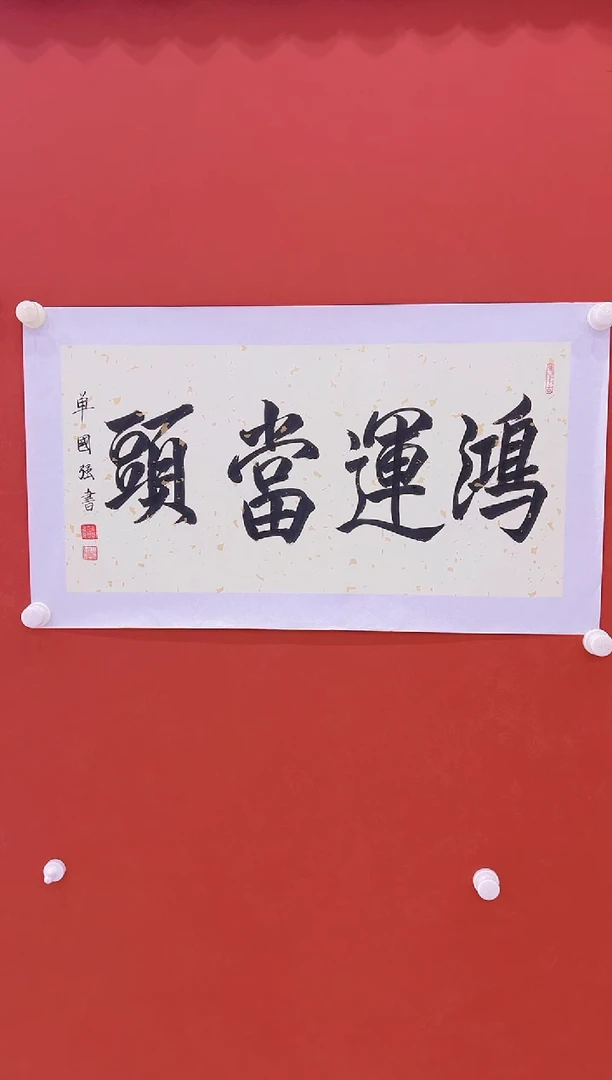 鴻運當頭
單國强書